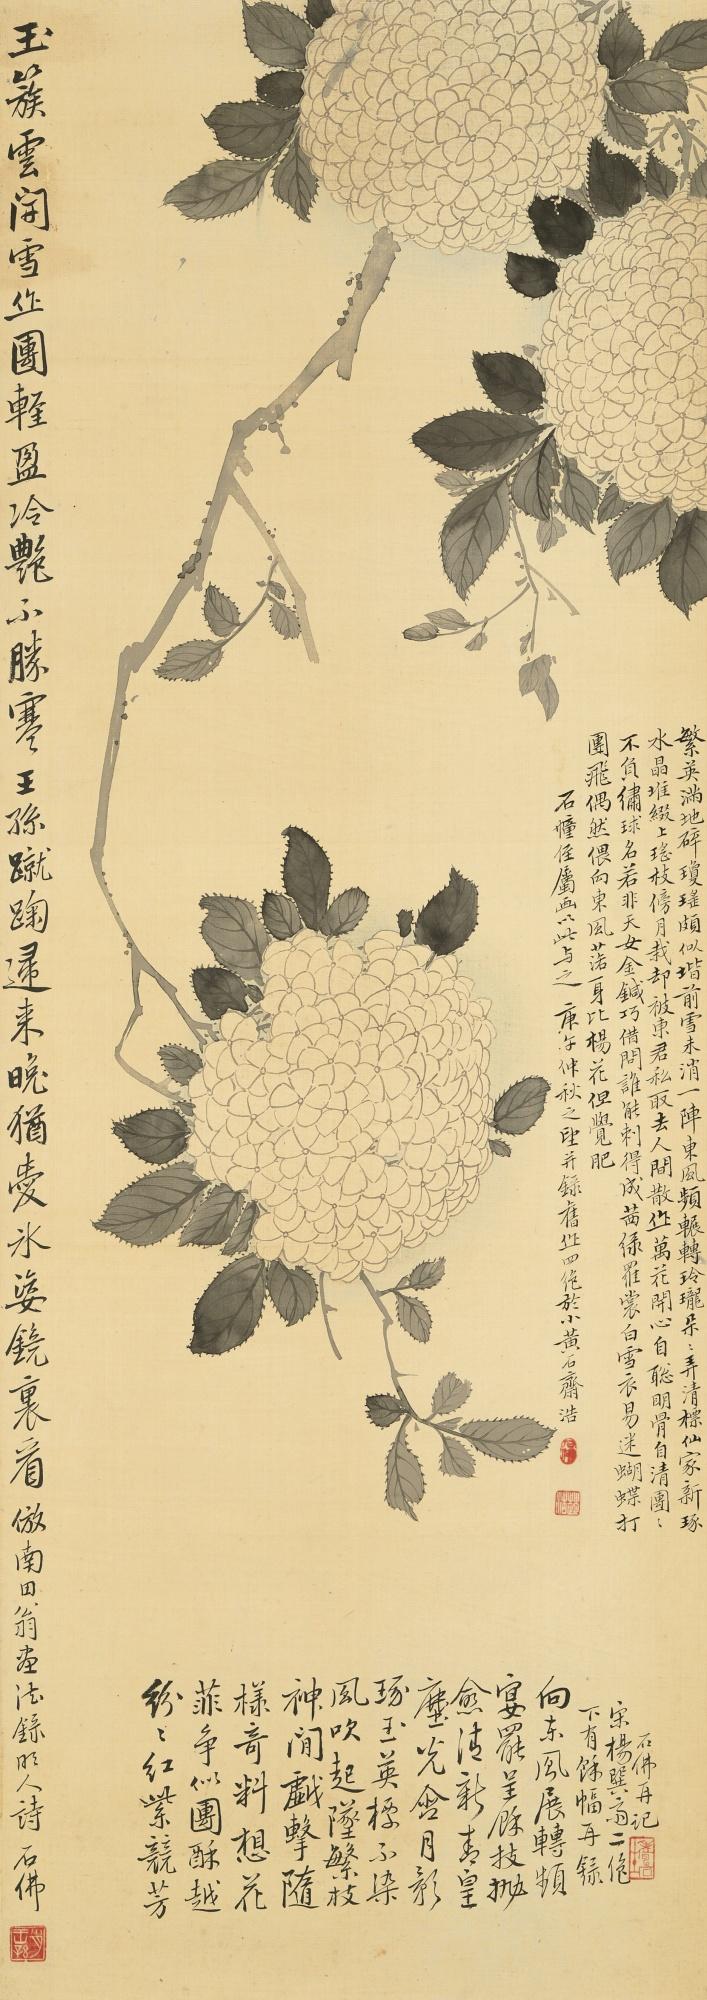 繁英滿地碎瓊瑤頗似堦前雪未消一陣東風頻輾轉玲瓏朶〻弄清標仙家新琢
水晶堆綴上瑤枝傍月栽却被東君私取去人間散作萬花開心自聡明骨自清團〻
不負繡球名若非天女金鍼巧借問誰能刺得成茜綠羅裳白雪衣易迷蝴蝶打
團飛偶然偎向東風落身比楊花但覺肥
石幢侄屬画以此与之 庚午仲秋之望并錄舊作四絶於小黃石齋浩
玉簇雲開雪作團輕盈冷艷不勝寒王孫蹴踘歸来晚猶愛氷姿鏡裏看 倣南田翁画法錄明人詩 石佛
紛〻紅紫競芳
菲争似團酥越
樣奇料想花
神閒戯擊隨
風吹起墜繁枝
琢玉英標不染
塵光含月影
愈清新青皇
宴罷呈餘技抛
向东風展轉頻
宋楊巽斋二绝
下有餘幅再錄
石佛再记